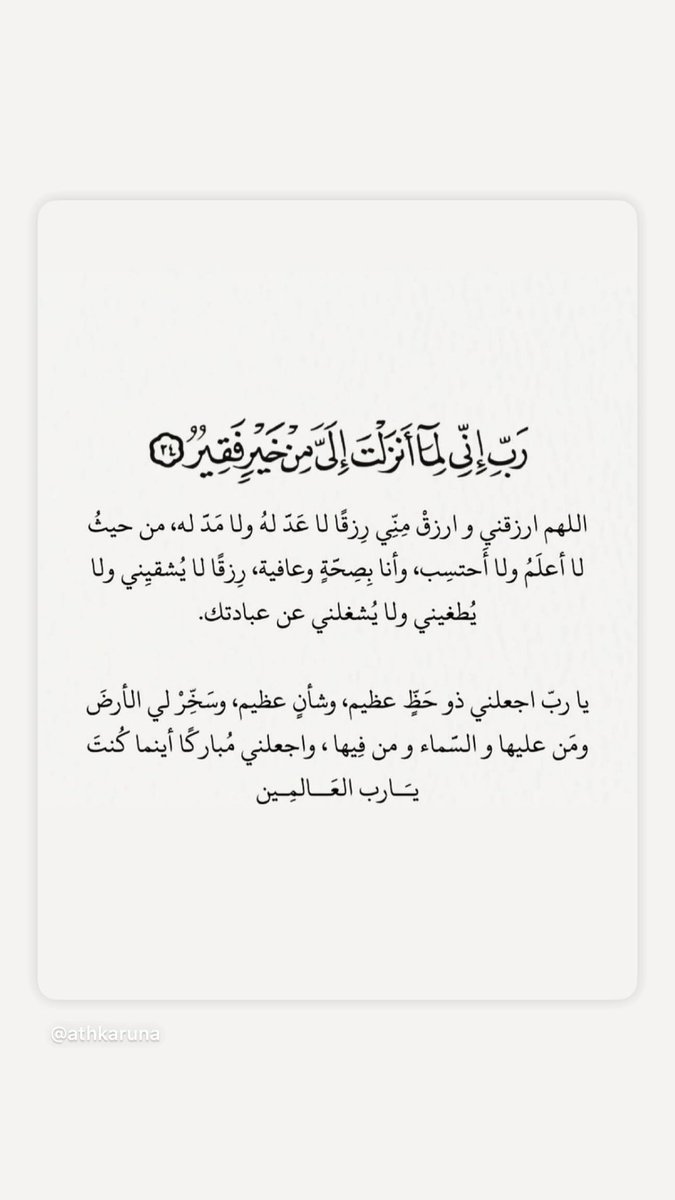 رَبِّ إِنِّي لِمَآ أَنزَلْتَ إِلَيَّ مِنْ خَيْرٍ فَقِيرٌ ٢٤
اللهم ارزقني و ارزقْ مِنِّي رِزقًا لا عَدّ لهُ ولا مَدّ له، من حيثُ
لا أعلَمُ ولا أَحتسِب، وأنا بِصِحّةٍ وعافية، رِزقًا لا يُشقيِني ولا
يُطغيني ولا يُشغلني عن عبادتك.
يا ربّ اجعلني ذو حَظٍّ عظيم، وشأنٍ عظيم، وسَخِّرْ لي الأرضَ
ومَن عليها و السّماء و من فِيها ، واجعلني مُباركًا أينما كُنتَ
يَــارب العَــالمِــين
@athkaruna